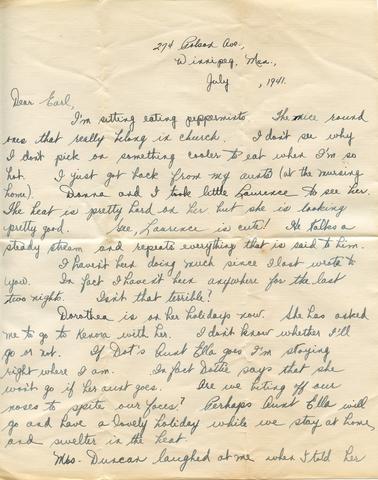 274 Robson Ave.,
Winnipeg, Man.,
July , 1941.
Dear Earl,
I'm sitting eating peppermints. The nice round
ones that really belong in church. I don't see why
I don't pick on something cooler to eat when I'm so
hot. I just got back from my aunts (at the nursing
home). Donna and I took little Laurence to see her.
The heat is pretty hard on her but she is looking
pretty good. Gee, Laurence is cute! He talks a
steady stream and repeats everything that is said to him.
I haven't been doing much since I last wrote to
you. In fact I haven't been anywhere for the last
two nights. Isn't that terrible?
Dorothea is on her holidays now. She has asked
me to go to Kenora with her. I don't know whether I'll
go or not. If Dot's Aunt Ella goes I'm staying
right where I am. In fact Dottie says that she
won't go if her aunt goes. Are we biting off our
noses to spite our faces? Perhaps Aunt Ella will
go and have a lovely holiday while we stay at home,
and swelter in the heat.
Mrs. Duncan laughed at me when I told her